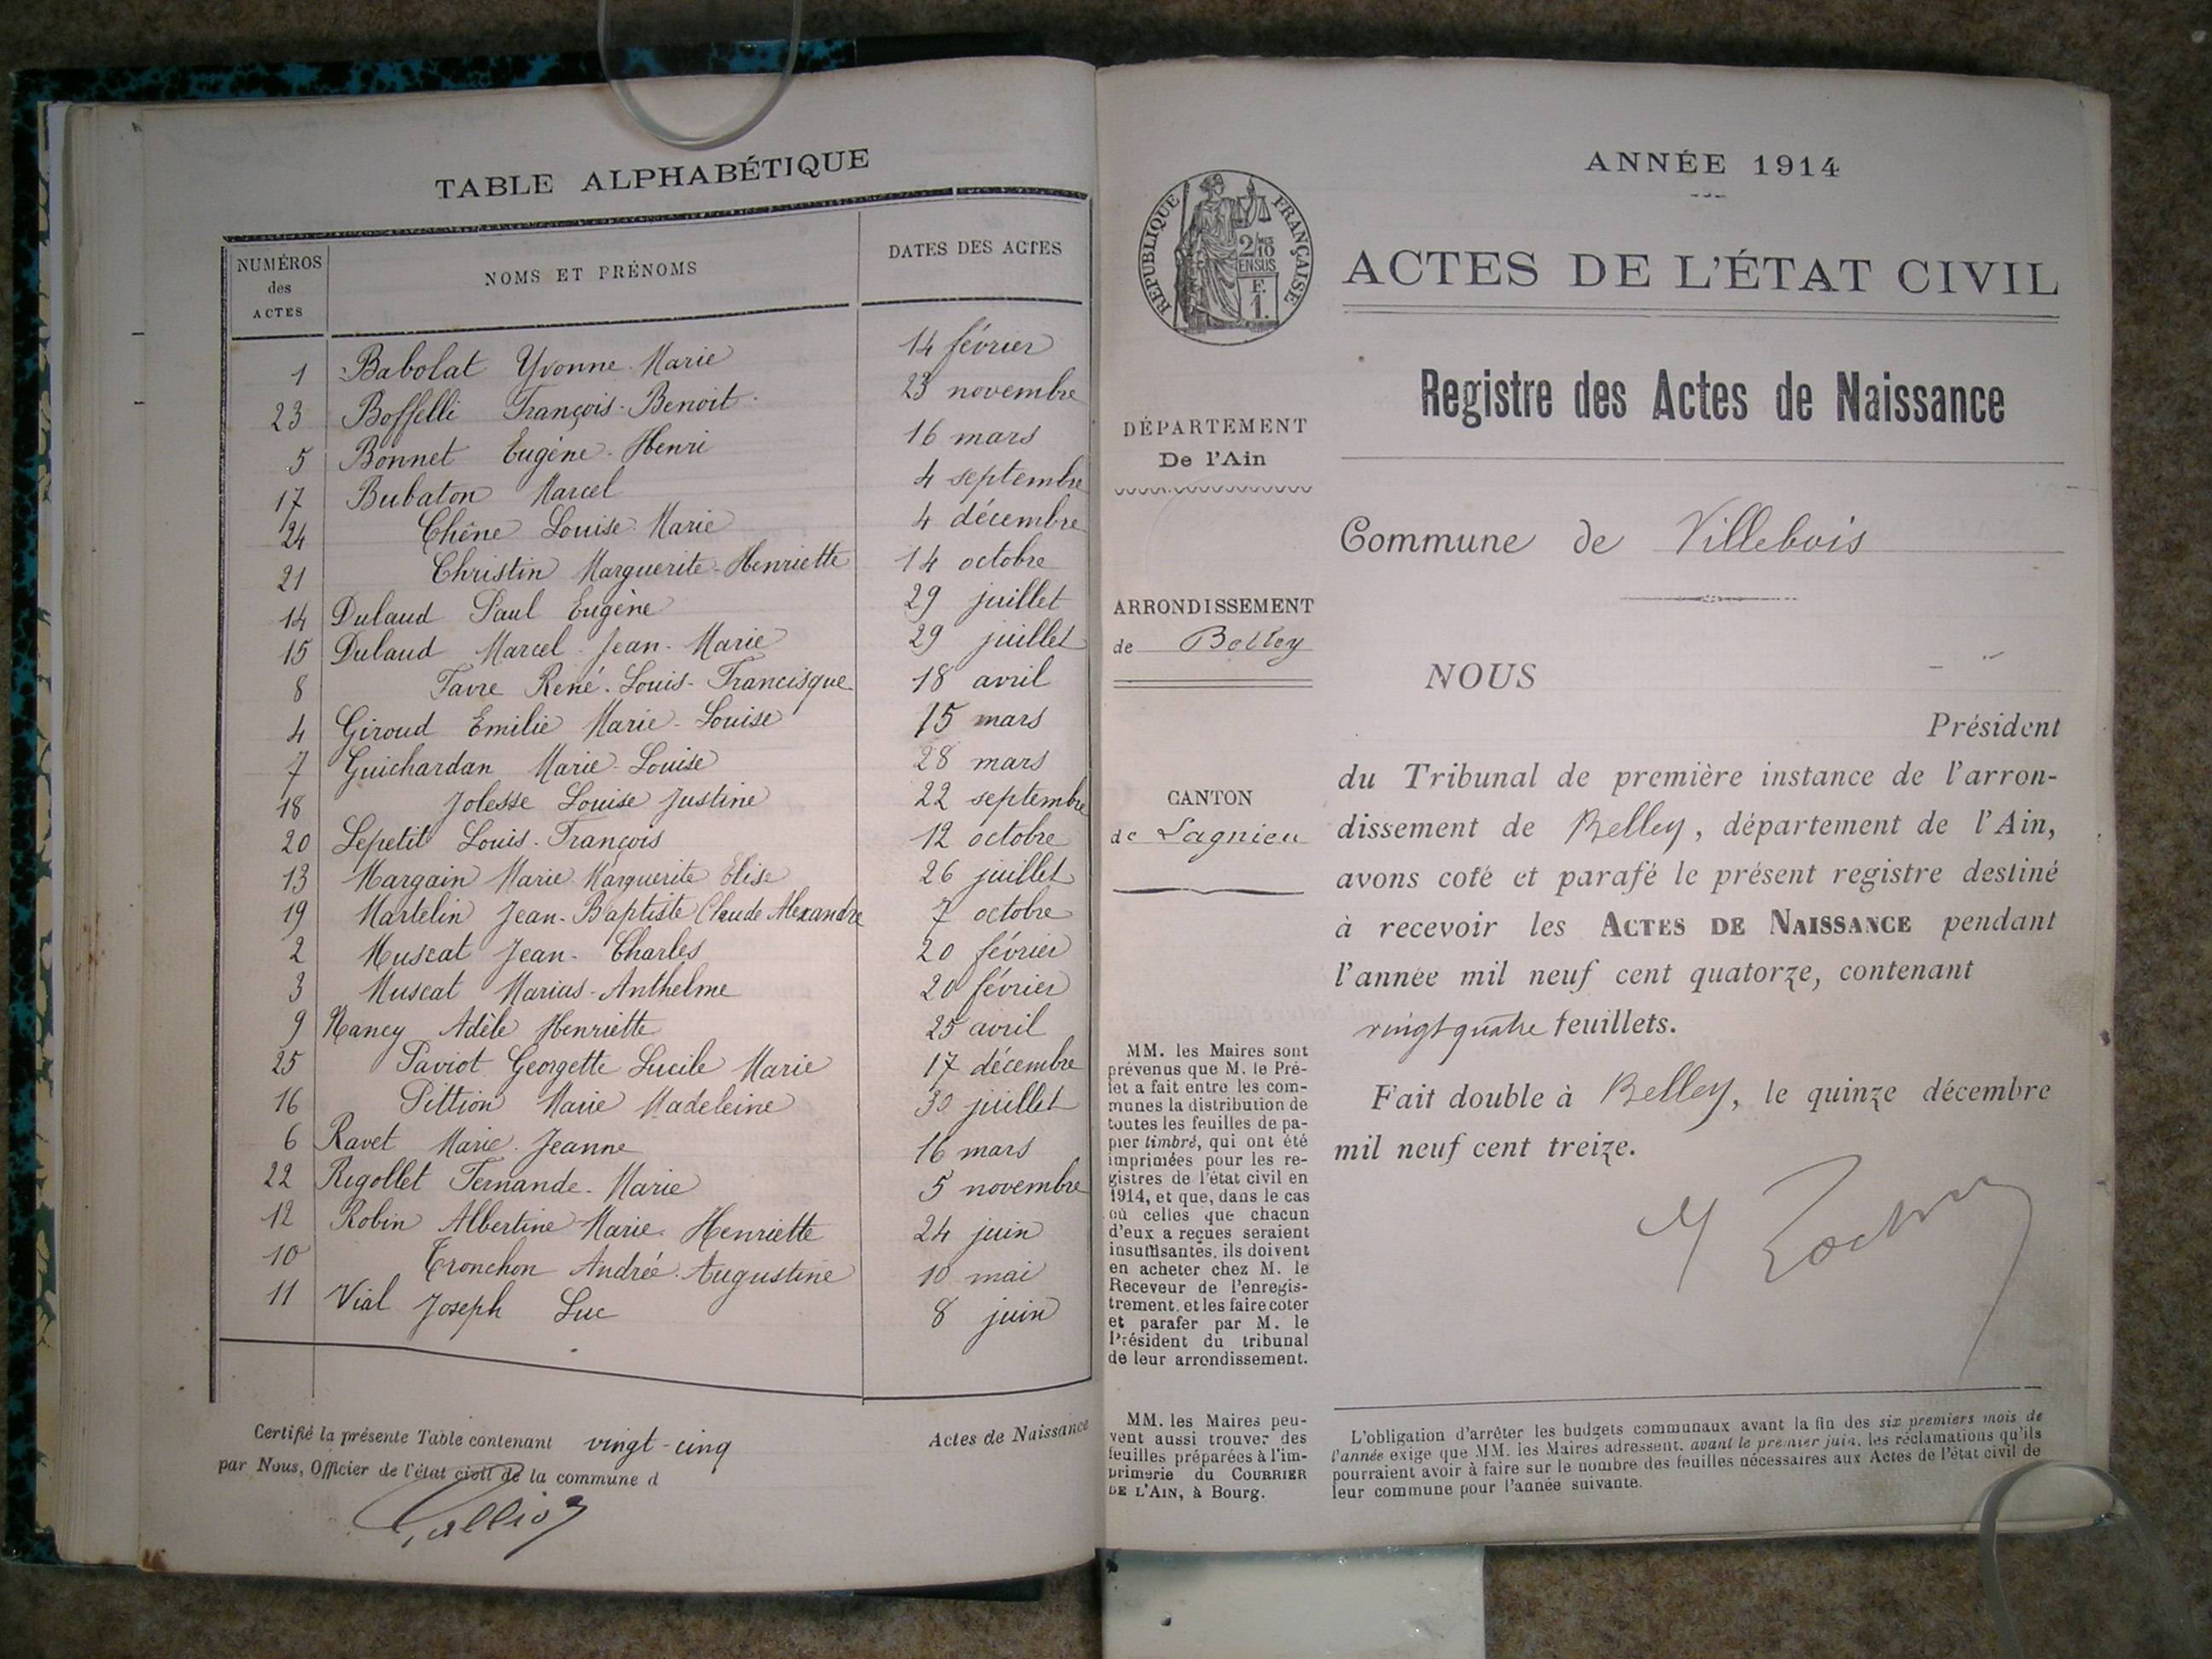 TABLE ALPHABÉTIQUE
NUMÉROS des ACTES NOMS ET PRÉNOMS DATES DES ACTES
1 Babolat Yvonne Marie 14 février
23 Boffelli François-Benoit 23 novembre
5 Bonnet Eugène-Henri 16 mars
17 Bubaton Marcel 4 septembre
24 Chêne Louise Marie 4 décembre
21 Christin Marguerite-Henriette 14 octobre
14 Dulaud Paul Eugène 29 juillet
15 Dulaud Marcel Jean-Marie 29 juillet
8 Favre René-Louis-Francisque 18 avril
4 Giroud Emilie Marie-Louise 15 mars
7 Guichardan Marie-Louise 28 mars
18 Jolesse Louise Justine 22 septembre
20 Lepetit Louis-François 12 octobre
13 Margain Marie Marguerite Elise 26 juillet
19 Martelin Jean-Baptiste Claude Alexandre 7 octobre
2 Muscat Jean-Charles 20 février
3 Muscat Marius-Anthelme 20 février
9 Nancy Adèle Henriette 25 avril
25 Paviot Georgette Lucile Marie 17 décembre
16 Pittion Marie Madeleine 30 juillet
6 Ravet Marie Jeanne 16 mars
22 Rigollet Fernande-Marie 5 novembre
12 Robin Albertine Marie Henriette 24 juin
10 Tronchon Andrée Augustine 10 mai
11 Vial Joseph Luc 8 juin
Certifié la présente Table contenant vingt-cinq Actes de Naissance
par Nous, Officier de l'état civil de la commune d
ANNÉE 1914
RÉPUBLIQUE FRANÇAISE
2/10
EN SUS
F.
1.
ACTES DE L'ÉTAT CIVIL
Registre des Actes de Naissance
DÉPARTEMENT
De l'Ain
Commune de Villebois
ARRONDISSEMENT
de Belley
CANTON
de Lagnieu
NOUS
Président
du Tribunal de première instance de l'arron-
dissement de Belley, département de l'Ain,
avons coté et parafé le présent registre destiné
à recevoir les ACTES DE NAISSANCE pendant
l'année mil neuf cent quatorze, contenant
vingt quatre feuillets.
Fait double à Belley, le quinze décembre
mil neuf cent treize.
MM. les Maires sont
prévenus que M. le Pré-
fet a fait entre les com-
munes la distribution de
toutes les feuilles de pa-
pier timbré, qui ont été
imprimées pour les re-
gistres de l'état civil en
1914, et que, dans le cas
où celles que chacun
d'eux a reçues seraient
insuffisantes, ils doivent
en acheter chez M. le
Receveur de l'enregis-
trement, et les faire coter
et parafer par M. le
Président du tribunal
de leur arrondissement.
MM. les Maires peu-
vent aussi trouver des
feuilles préparées à l'im-
primerie du COURRIER
DE L'AIN, à Bourg.
L'obligation d'arrêter les budgets communaux avant la fin des six premiers mois de
l'année exige que MM. les Maires adressent, avant le premier juin, les réclamations qu'ils
pourraient avoir à faire sur le nombre des feuilles nécessaires aux Actes de l'état civil de
leur commune pour l'année suivante.